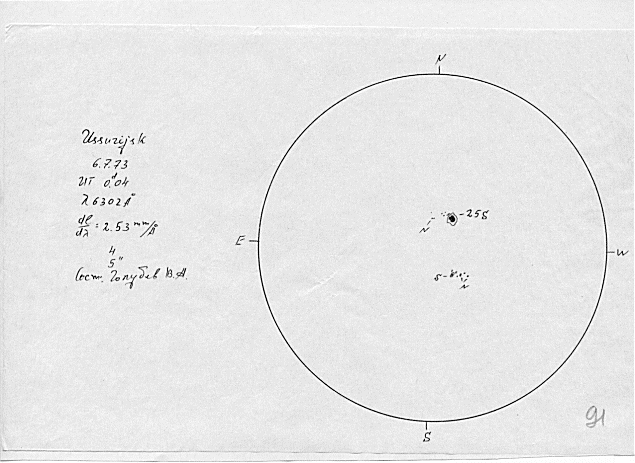 N
Ussurijsk
6.7.73
UT 0.ᵈ04
λ 6302 Å
dℓ/dλ = 2.53 mm/Å
4
5"
Сост. Голубев В.А.
-25S
N
E
W
S-
N
S
91